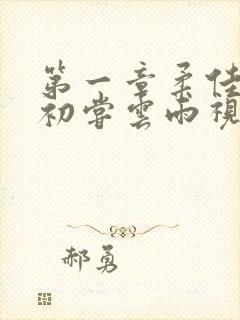 第一章柔佳
初尝云雨视
郝勇